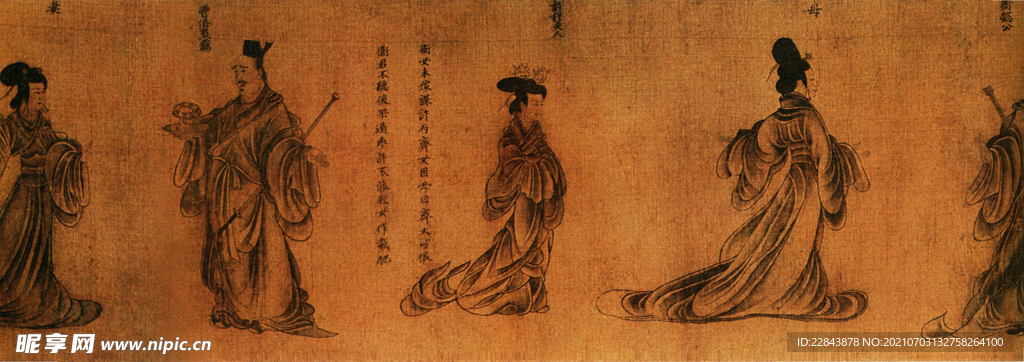 衛懿公
母
許穆夫人
衛女未嫁謀許与齊女因母曰齊大可依
衛君不聽後果遁逃許不能救女作載馳
曹僖負羈
妻
昵享网 www.nipic.cn
ID:22843878 NO:20210703132758264100